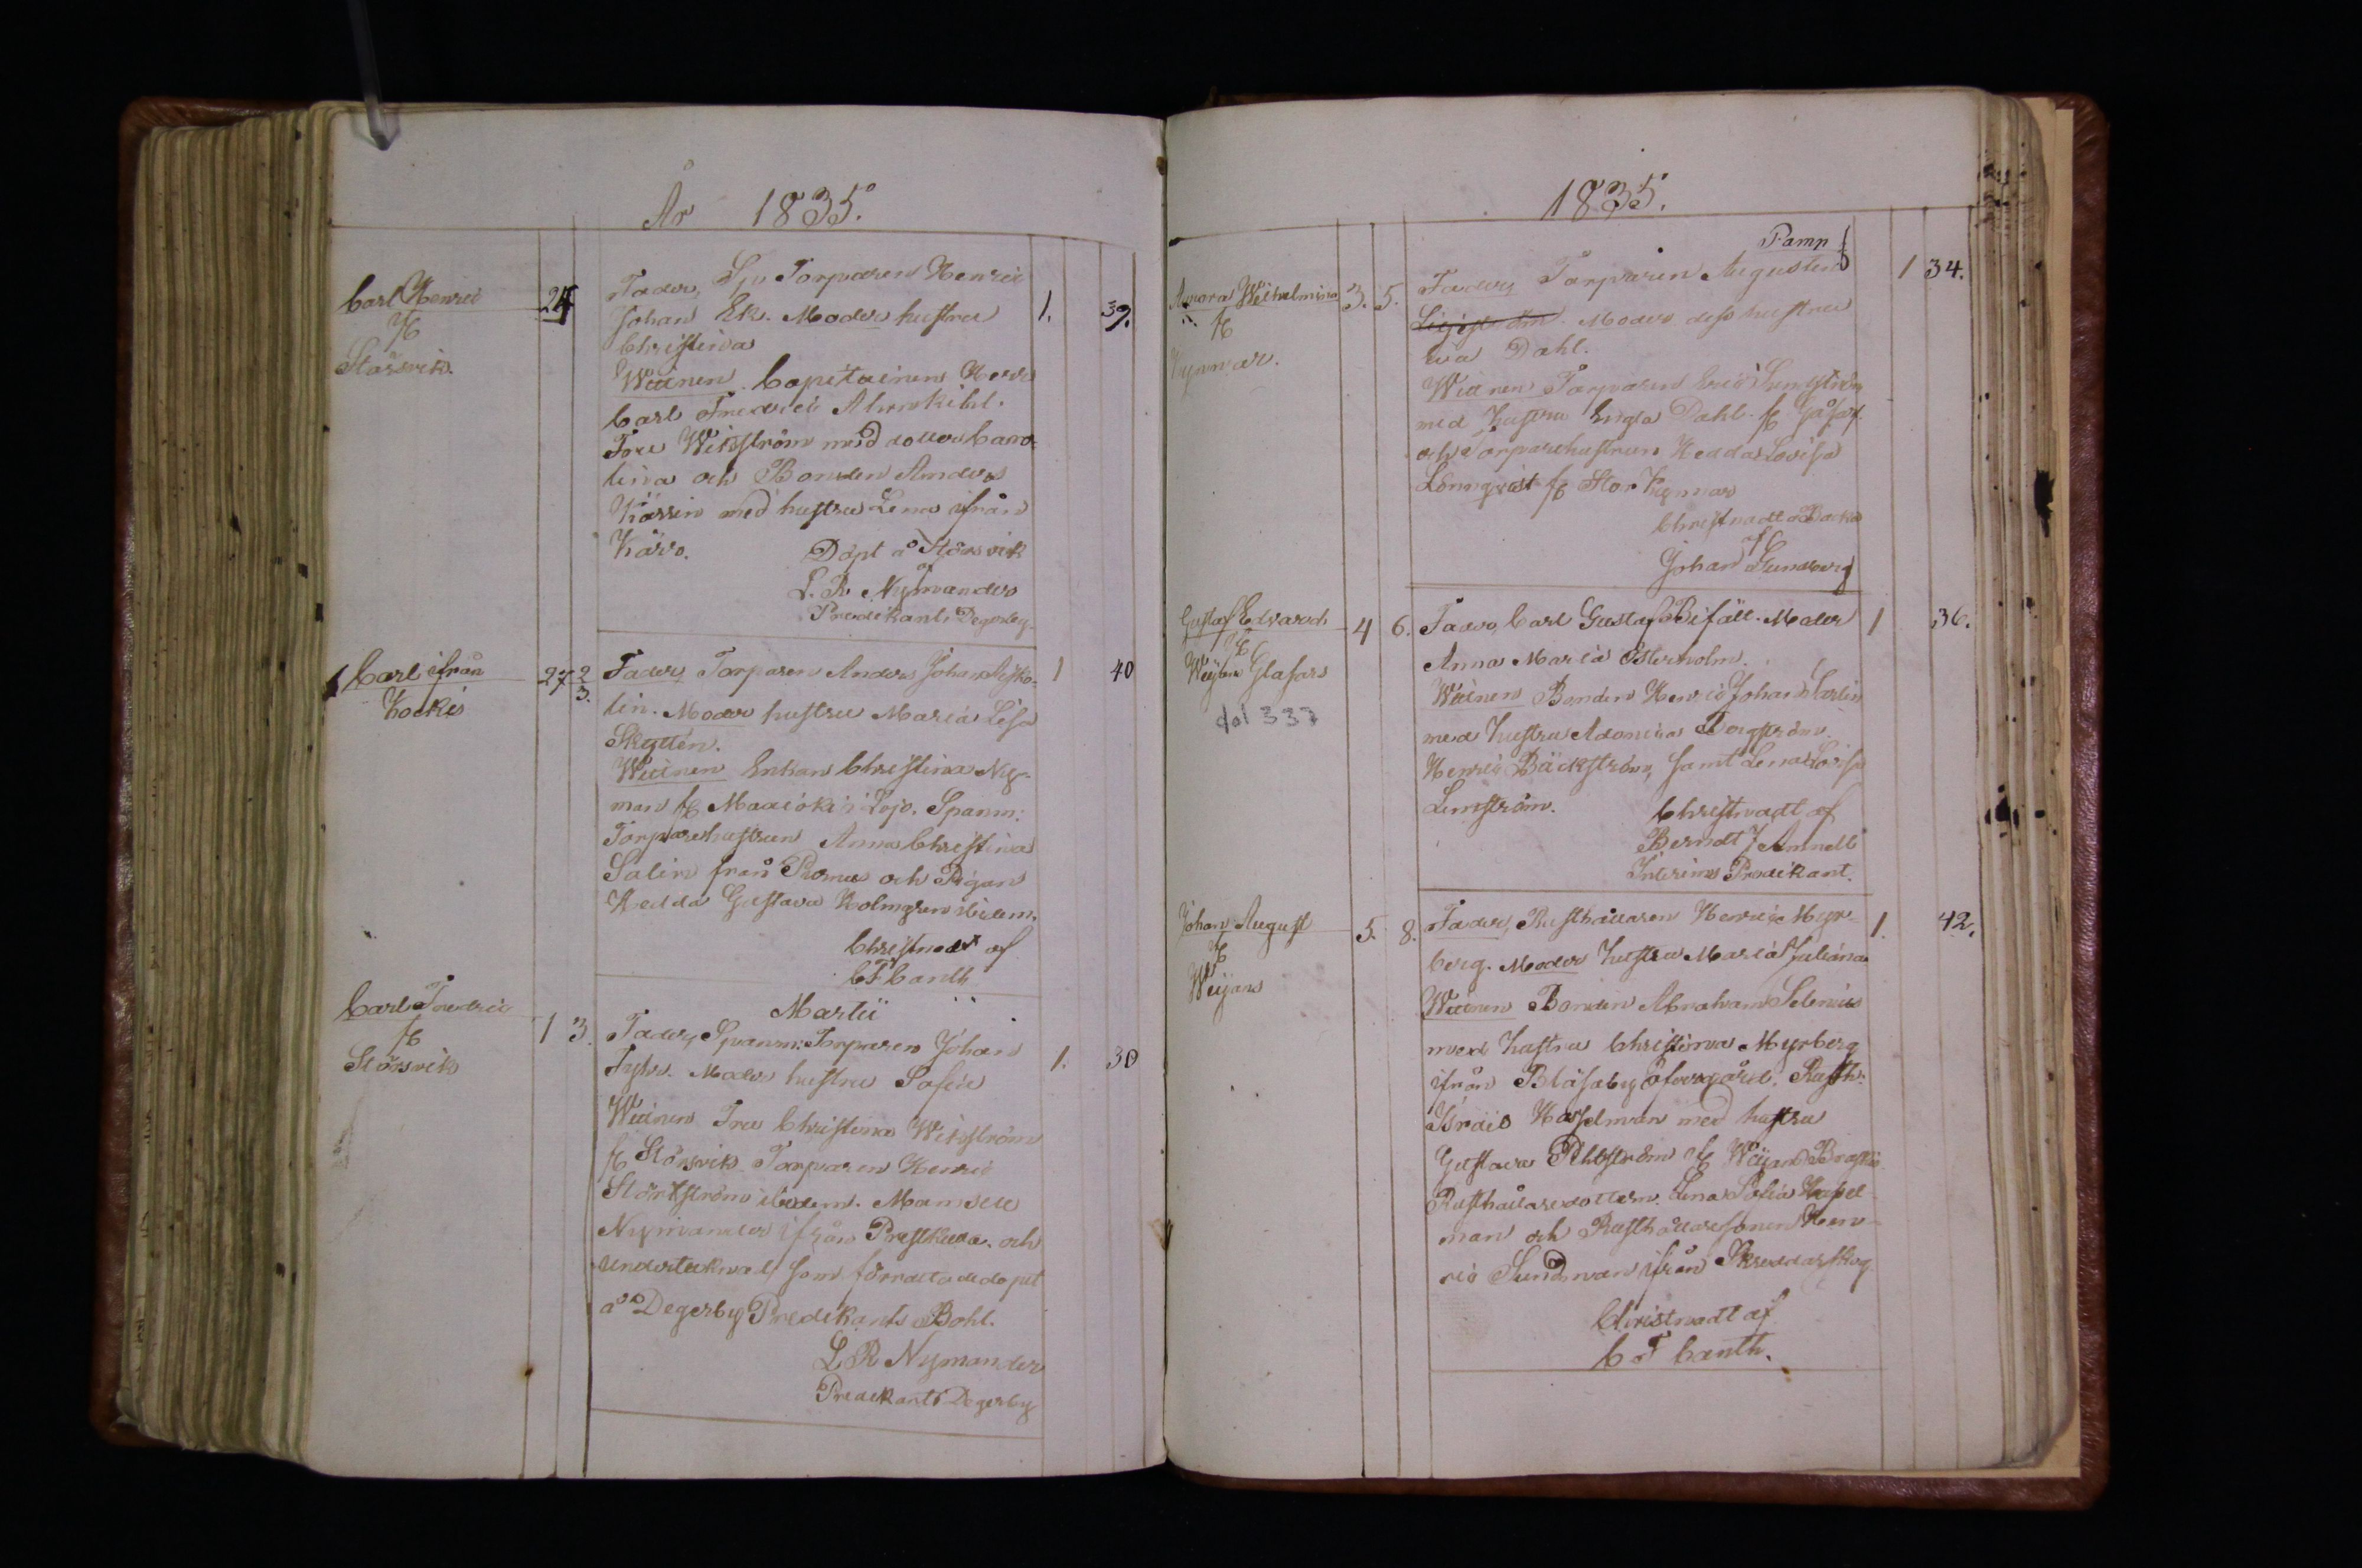 År 1835.
Carl Henric
fr
Störsvik.
24
Fader, Sp. Torparen Henric
Johan Ek. Moder hustru
Christina
1. 39.
Wittnen Capitainen Herr
Carl Fredric
Fru Wikström med dotter Caro-
lina och Bonden Anders
med hustru Lena ifrån
Döpt å Störsvik
af
L. R. Nymander
Predikant i Degerby.
Carl ifrån
Kockis
27 2/3.
Fader, Torparen Anders Johan
lin. Moder hustru Maria Lisa
Skyttén.
1 40
Wittnen Enkan Christina Ny-
man fr i Lojo. Spanm:
Torparehustrun Anna Christina
Salin från och Pigan
Hedda Gustava Holmgren ibidem.
Christnadt af
C F Canth
Martii
Carl Fredric
fr
Störsvik
1 3.
Fader, Spanm: Torparen Johan
Moder hustru Sofia
1. 30
Wittnen Fru Christina Wikström
fr Störsvik Torparen Henric
Störtström ibidem. Mamsell
Nymander ifrån Prestkulla. och
undertecknad som förrättade dopet
å Degerby Predikants Bohl.
L R Nymander
Predikant i Degerby
1835.
Aurora Wilhelmina
fr
Kynnar.
3. 5.
Pamp
Fader, Torparen Augustin
Moder dess hustru
Eva Dahl.
1 34.
Wittnen Torparen Eric Lundström
med hustru Engla Dahl fr
och Torparehustrun Hedda Lovisa
Lönnqvist fr Stor Kynnar
Christnadt å Backa
af
Johan Sundberg
Gustaf Edvard
fr
Weijans Glasars
fol 337
4 6.
Fader, Carl Gustaf Bifäll. Moder
Anna Maria Österholm.
1 36.
Wittnen Bonden Henric Johan Sarlin
med hustru Adamina Borgström
Henric Bäckström, samt Lena Lovisa
Lindström.
Christnadt af
Berndt J Amnell
Interims Predikant.
Johan August
fr
Weijans
5. 8.
Fader, Rusthållaren Henric Myr-
berg. Moder hustru Maria Juliana
1. 42.
Wittnen Bonden Abraham Selenius
med hustru Christina Myrberg
ifrån Blåsaby öfvergård. Rusth:
Isräio Hasselman med hustru
Gustava Pihlström fr Weijans
Rusthållaredottern Lena Sofia Hassel-
man och Rusthållaresonen Hen-
ric Sundman ifrån Skräddarskog
Christnadt af
C F Canth.